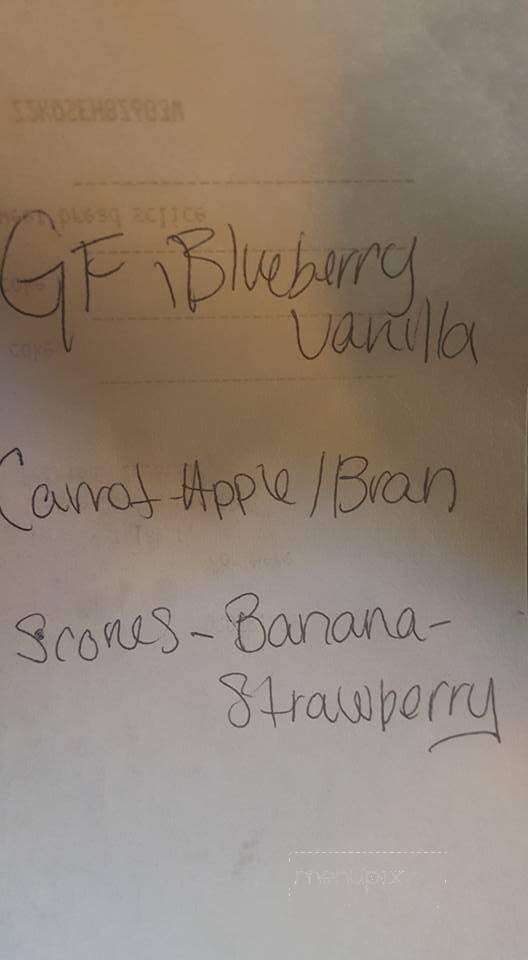 GF \ Blueberry
Vanilla
Carrot Apple/Bran
Scones - Banana -
Strawberry
menupix